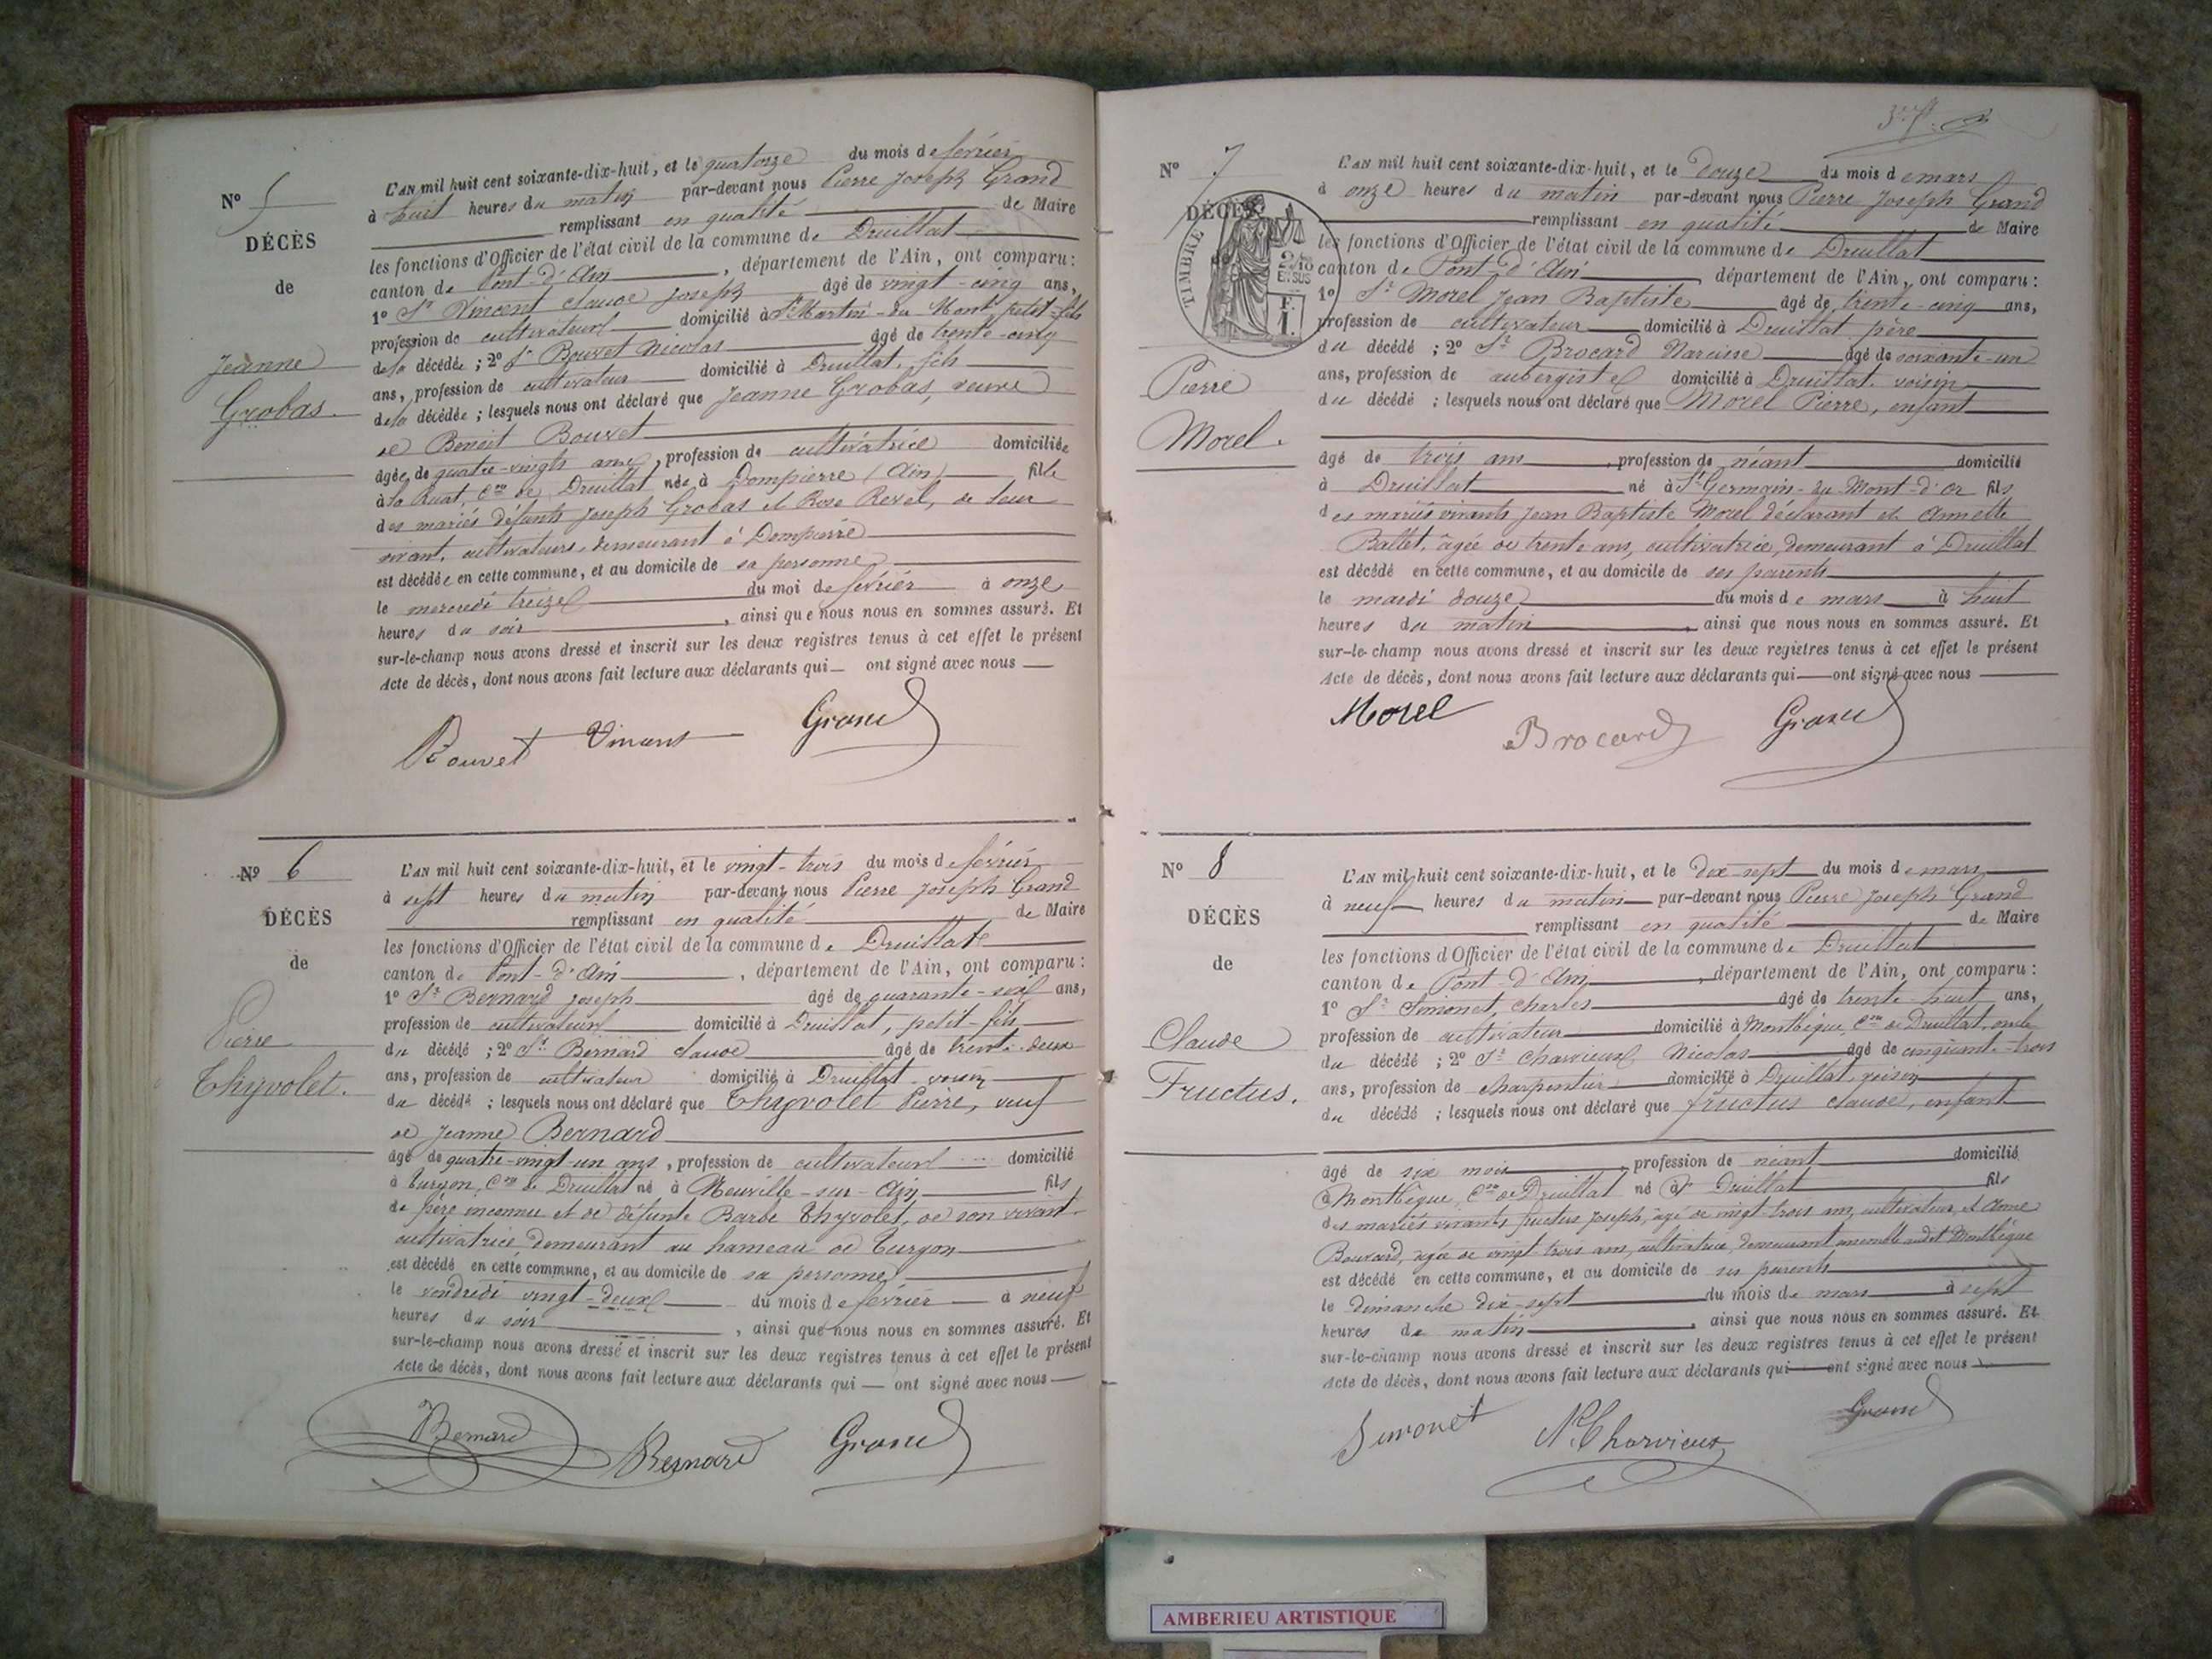 Nº 5
DÉCÈS
de
Jeanne
Grobas.
L'AN mil huit cent soixante-dix-huit, et le quatorze du mois de février
à huit heures du matin par-devant nous Pierre Joseph Grand
remplissant en qualité de Maire
les fonctions d'Officier de l'état civil de la commune de Druillat
canton de Pont-d'Ain, département de l'Ain, ont comparu:
1º Sr Vincent Claude Joseph âgé de vingt-cinq ans,
profession de cultivateur domicilié à St Martin-du-Mont, petit-fils
de la décédée; 2º Sr Bouvet Nicolas âgé de trente-cinq
ans, profession de cultivateur domicilié à Druillat, fils
de la décédée; lesquels nous ont déclaré que Jeanne Grobas, veuve
de Benoit Bouvet
âgée de quatre-vingts ans, profession de cultivatrice domiciliée
à la Ruat, Cne de Druillat née à Dompierre (Ain) fille
des mariés défunts Joseph Grobas et Rose Revel, de leur
vivant, cultivateurs, demeurant à Dompierre
est décédée en cette commune, et au domicile de sa personne
le mercredi treize du moi de février à onze
heures du soir, ainsi que nous nous en sommes assuré. Et
sur-le-champ nous avons dressé et inscrit sur les deux registres tenus à cet effet le présent
Acte de décès, dont nous avons fait lecture aux déclarants qui ont signé avec nous
Bouvet Vincent Grand
Nº 6
DÉCÈS
de
Pierre
Thyvolet.
L'AN mil huit cent soixante-dix-huit, et le vingt-trois du mois de février
à sept heures du matin par-devant nous Pierre Joseph Grand
remplissant en qualité de Maire
les fonctions d'Officier de l'état civil de la commune de Druillat
canton de Pont-d'Ain, département de l'Ain, ont comparu:
1º Sr Bernard Joseph âgé de quarante-six ans,
profession de cultivateur domicilié à Druillat, petit-fils
du décédé; 2º Sr Bernard Claude âgé de trente-deux
ans, profession de cultivateur domicilié à Druillat voisin
du décédé; lesquels nous ont déclaré que Thyvolet Pierre, veuf
de Jeanne Bernard
âgé de quatre-vingt-un ans, profession de cultivateur domicilié
à Turgon, Cne de Druillat né à Neuville-sur-Ain fils
de père inconnu et de défunte Barbe Thyvolet, de son vivant
cultivatrice demeurant au hameau de Turgon
est décédé en cette commune, et au domicile de sa personne
le vendredi vingt-deux du mois de février à neuf
heures du soir, ainsi que nous nous en sommes assuré. Et
sur-le-champ nous avons dressé et inscrit sur les deux registres tenus à cet effet le présent
Acte de décès, dont nous avons fait lecture aux déclarants qui ont signé avec nous
Bernard Bernard Grand
Nº 7
DÉCÈS
TIMBRE
2/10
EN SUS
Pierre
Morel.
L'AN mil huit cent soixante-dix-huit, et le douze du mois de mars
à onze heures du matin par-devant nous Pierre Joseph Grand
remplissant en qualité de Maire
les fonctions d'Officier de l'état civil de la commune de Druillat
canton de Pont-d'Ain département de l'Ain, ont comparu:
1º Sr Morel Jean Baptiste âgé de trente-cinq ans,
profession de cultivateur domicilié à Druillat père
du décédé; 2º Sr Brocard Narcisse âgé de soixante-un
ans, profession de aubergiste domicilié à Druillat voisin
du décédé; lesquels nous ont déclaré que Morel Pierre, enfant
âgé de trois ans, profession de néant domicilié
à Druillat né à St Germain-du-Mont-d'or fils
des mariés vivants Jean Baptiste Morel déclarant et Annette
Ballet, âgée de trente ans, cultivatrice, demeurant à Druillat
est décédé en cette commune, et au domicile de ses parents
le mardi douze du mois de mars à huit
heures du matin, ainsi que nous nous en sommes assuré. Et
sur-le-champ nous avons dressé et inscrit sur les deux registres tenus à cet effet le présent
Acte de décès, dont nous avons fait lecture aux déclarants qui ont signé avec nous
Morel Brocard Grand
Nº 8
DÉCÈS
de
Claude
Fructus.
L'AN mil huit cent soixante-dix-huit, et le dix-sept du mois de mars
à neuf heures du matin par-devant nous Pierre Joseph Grand
remplissant en qualité de Maire
les fonctions d'Officier de l'état civil de la commune de Druillat
canton de Pont-d'Ain, département de l'Ain, ont comparu:
1º Sr Simonet, Charles âgé de trente-huit ans,
profession de cultivateur domicilié à Montbègue, Cne de Druillat, oncle
du décédé; 2º Sr Charvieux Nicolas âgé de cinquante-trois
ans, profession de charpentier domicilié à Druillat voisin
du décédé; lesquels nous ont déclaré que Fructus Claude, enfant
âgé de six mois, profession de néant domicilié
à Montbègue, Cne de Druillat né à Druillat fils
des mariés vivants Fructus Joseph, âgé de vingt-trois ans, cultivateur, et
Bouvard, âgée de vingt trois ans, cultivatrice, demeurant ensemble audit Montbègue
est décédé en cette commune, et au domicile de ses parents
le dimanche dix-sept du mois de mars à sept
heures du matin, ainsi que nous nous en sommes assuré. Et
sur-le-champ nous avons dressé et inscrit sur les deux registres tenus à cet effet le présent
Acte de décès, dont nous avons fait lecture aux déclarants qui ont signé avec nous
Simonet N. Charvieux Grand
AMBERIEU ARTISTIQUE